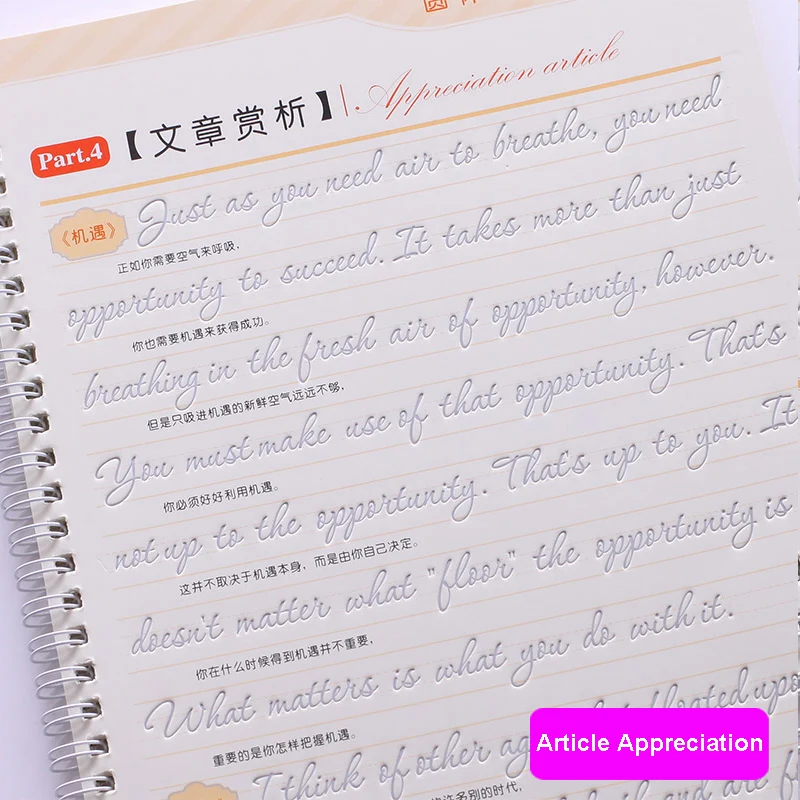 Part.4 【文章赏析】 Appreciation article
《机遇》 Just as you need air to breathe, you need
正如你需要空气来呼吸，
opportunity to succeed. It takes more than just
你也需要机遇来获得成功。
breathing in the fresh air of opportunity, however.
但是只吸进机遇的新鲜空气远远不够，
You must make use of that opportunity. That's
你必须好好利用机遇。
not up to the opportunity. That's up to you. It
这并不取决于机遇本身，而是由你自己决定。
doesn't matter what "floor" the opportunity is
你在什么时候得到机遇并不重要，
What matters is what you do with it.
重要的是你怎样把握机遇。
I think of other floated upo
名别的时代，
and are f
Article Appreciation